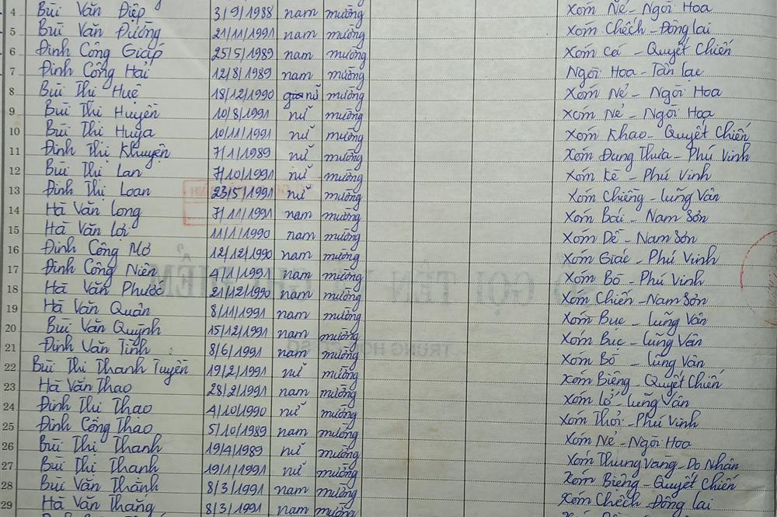 4 Bùi Văn Điệp 3/9/1988 nam mường Xóm Né - Ngòi Hoa
5 Bùi Văn Đường 21/11/1991 nam mường Xóm Chếch - Đông lai
6 Đinh Công Giáp 25/5/1989 nam mường Xóm Cá - Quyết Chiến
7 Đinh Công Hải 12/8/1989 nam mường Ngòi Hoa - Tân lạc
8 Bùi Thị Huệ 18/12/1990 nữ mường Xóm Né - Ngòi Hoa
9 Bùi Thị Huyền 10/8/1991 nữ mường Xóm Né - Ngòi Hoa
10 Bùi Thị 10/11/1991 nữ mường Xóm Khao - Quyết Chiến
11 Đinh Thị Khuyên 7/1/1989 nữ mường Xóm Đung Thưa - Phú Vinh
12 Bùi Thị Lan 7/10/1991 nữ mường Xóm Kè - Phú Vinh
13 Đinh Thị Loan 23/5/1991 nữ mường Xóm Chiềng - lũng Vân
14 Hà Văn long 7/11/1991 nam mường Xóm Bái - Nam Sơn
15 Hà Văn lợi 11/1/1990 nam mường Xóm Dề - Nam Sơn
16 Đinh Công Mơ 12/12/1990 nam mường Xóm Giác - Phú Vinh
17 Đinh Công Niên 4/1/1991 nam mường Xóm Bò - Phú Vinh
18 Hà Văn Phước 21/12/1990 nam mường Xóm Chiến - Nam Sơn
19 Hà Văn Quân 8/11/1991 nam mường Xóm Bục - lũng Vân
20 Bùi Văn Quỳnh 15/12/1991 nam mường Xóm Bục - lũng Vân
21 Đinh Văn Tình 8/6/1991 nam mường Xóm Bò - lũng Vân
22 Bùi Thị Thanh Tuyền 19/2/1991 nam mường Xóm Biêng - Quyết Chiến
23 Hà Văn Thao 28/2/1991 nam mường Xóm lở - lũng Vân
24 Đinh Thị Thao 4/10/1990 nữ mường Xóm Thỏi - Phú Vinh
25 Đinh Công Thao 5/10/1989 nam mường Xóm Né - Ngòi Hoa
26 Bùi Thị Thanh 19/4/1989 nữ mường Xóm Thung Vàng - Do Nhân
27 Bùi Thị Thanh 19/1/1991 nữ mường Xóm Biêng - Quyết Chiến
28 Bùi Văn Thành 8/3/1991 nam mường Xóm Chếch Đông lai
29 Hà Văn Thắng 8/3/1991 nam mường